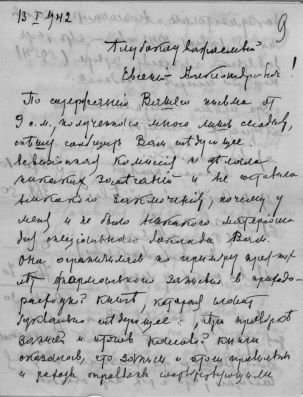 13 I 1942
9
Глубокоуважаемый
Евгений Александрович!
По содержанию Вашего письма от
9 с.м., полученного мною лишь сегодня,
спешу сообщить Вам следующее.
Ревизионная комиссия не делала
никаких замечаний и не оставила
никакого заключения, почему у
меня и не было никакого материала
для специального доклада Вам.
Она ограничилась по примеру прежних
лет формальной записью в приходо-
расходной книге, которая гласит
буквально следующее: При проверке
записей и итогов кассовой книги
оказалось, что записи и итоги правильны
и расходы оправданы соответствующими